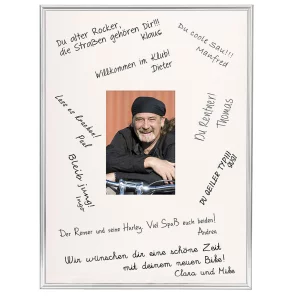 Du alter Rocker,
die Straßen gehören Dir!!!
Klaus
Du coole Sau!!!
Manfred
Willkommen im Klub!
Dieter
Lass es krachen!
Paul
Du Rentner!
Thomas
Bleib jung!
Ingo
DU GEILER TYP!!!
Der Renner und seine Harley. Viel Spaß euch beiden!
Andrea
Wir wünschen dir eine schöne Zeit
mit deinem neuen Bike!
Clara und Mike